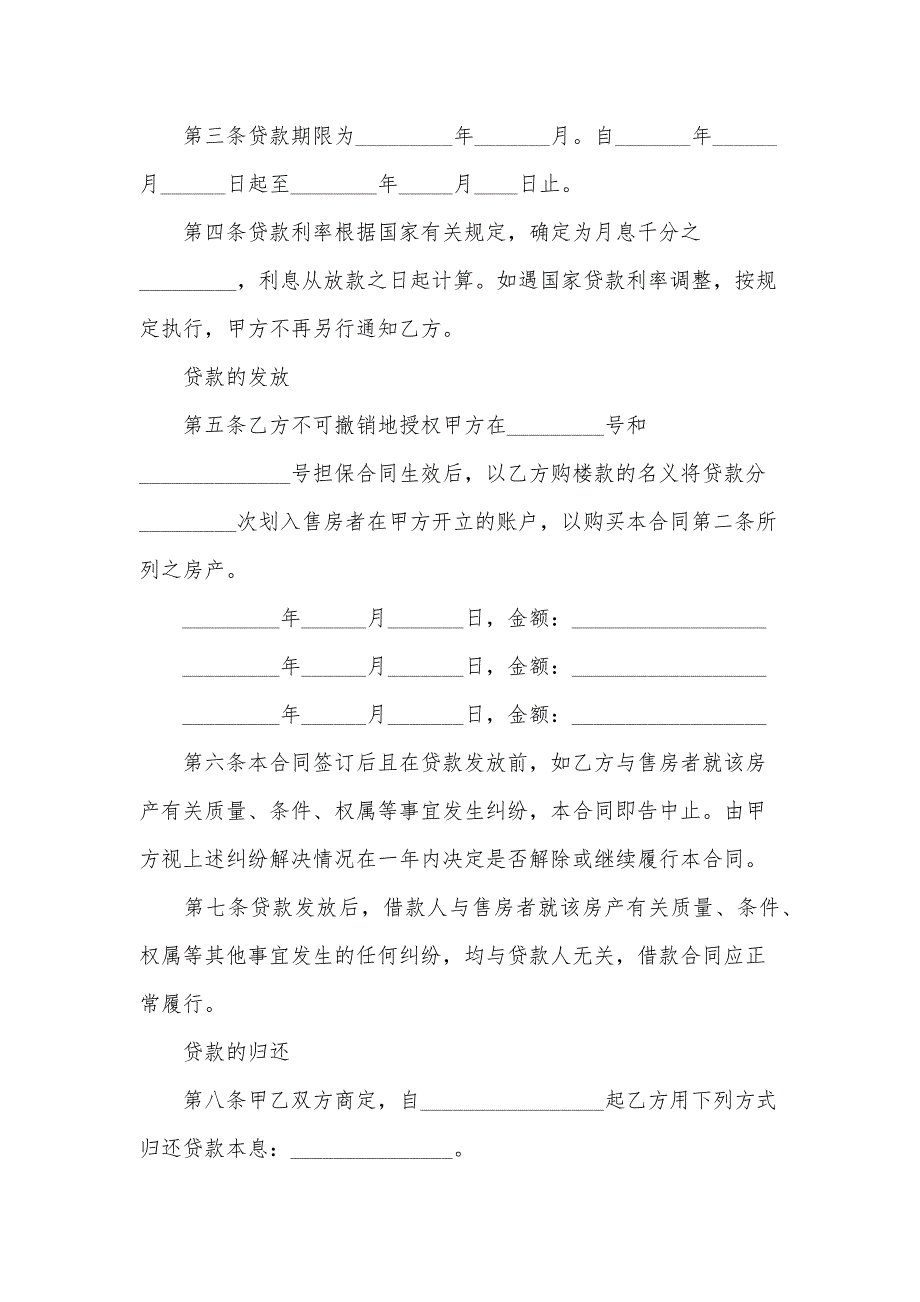 第三条贷款期限为_________年_______月。自_______年______
月______日起至________年_____月____日止。
第四条贷款利率根据国家有关规定，确定为月息千分之
_________，利息从放款之日起计算。如遇国家贷款利率调整，按规
定执行，甲方不再另行通知乙方。
贷款的发放
第五条乙方不可撤销地授权甲方在_________号和
______________号担保合同生效后，以乙方购楼款的名义将贷款分
_________次划入售房者在甲方开立的账户，以购买本合同第二条所
列之房产。
_________年______月_______日，金额：__________________
_________年______月_______日，金额：__________________
_________年______月_______日，金额：__________________
第六条本合同签订后且在贷款发放前，如乙方与售房者就该房
产有关质量、条件、权属等事宜发生纠纷，本合同即告中止。由甲
方视上述纠纷解决情况在一年内决定是否解除或继续履行本合同。
第七条贷款发放后，借款人与售房者就该房产有关质量、条件、
权属等其他事宜发生的任何纠纷，均与贷款人无关，借款合同应正
常履行。
贷款的归还
第八条甲乙双方商定，自_________________起乙方用下列方式
归还贷款本息：_______________。